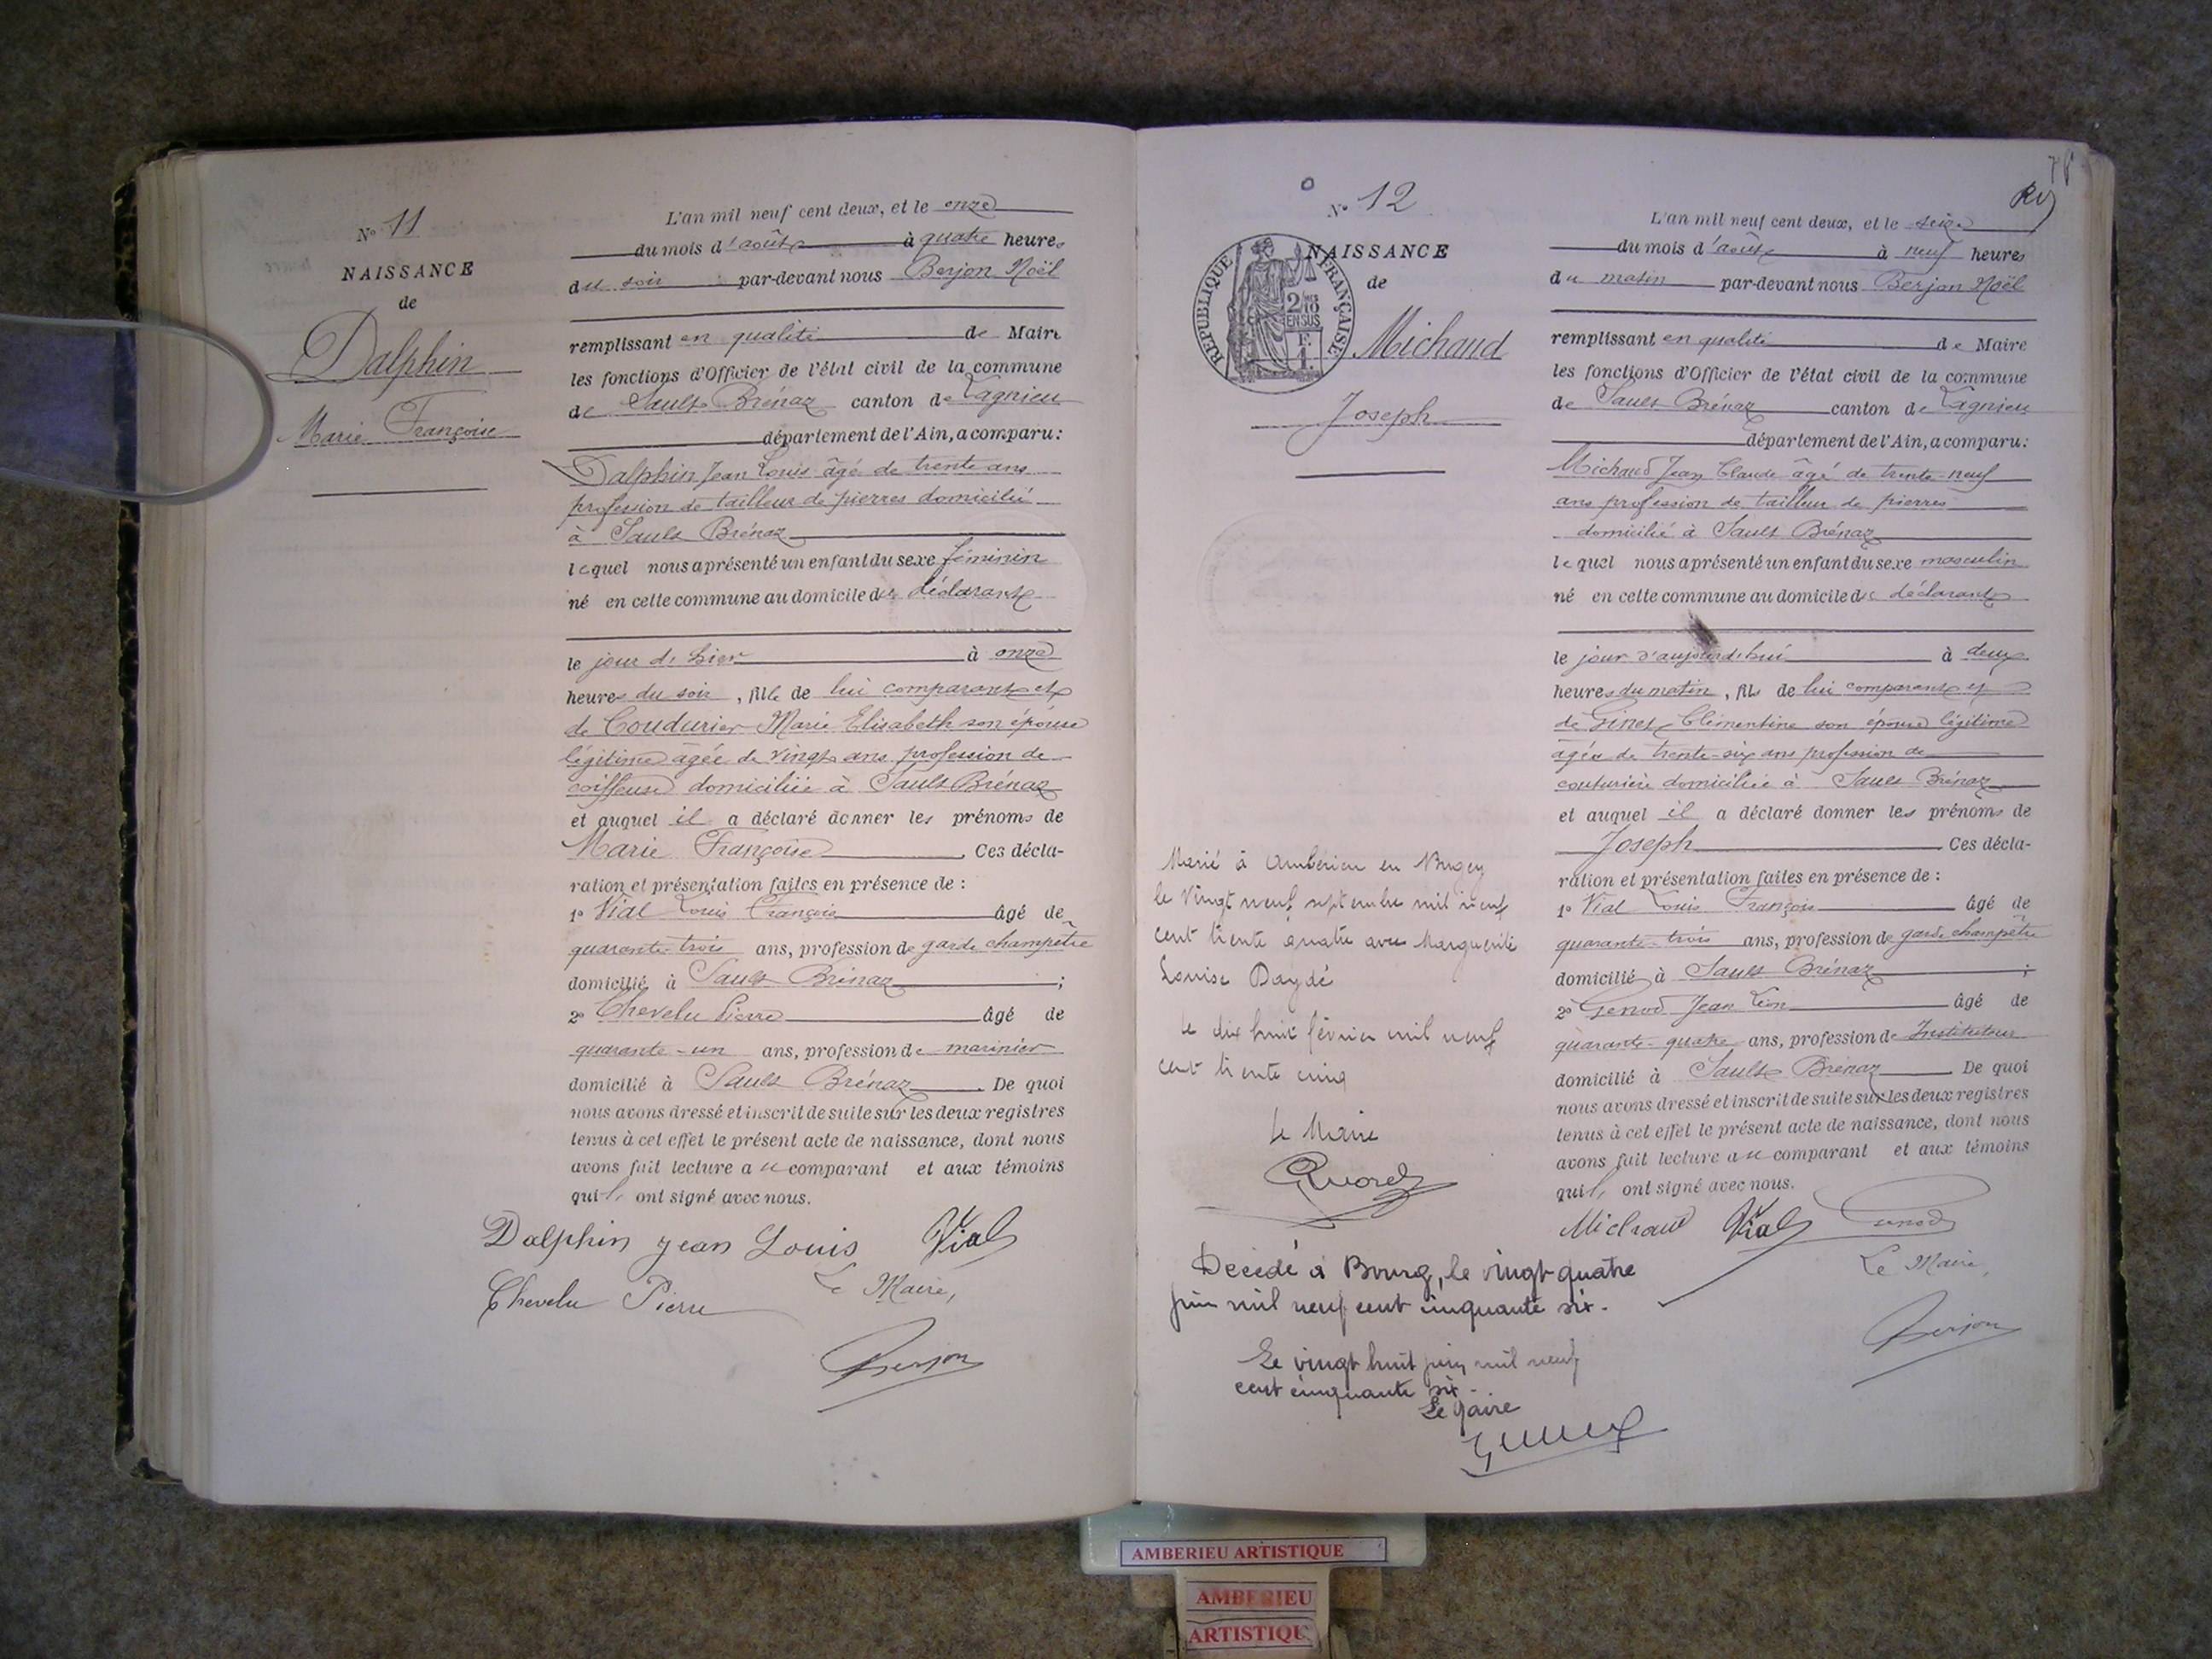 N° 11
NAISSANCE
de
Dalphin
Marie Françoise
L'an mil neuf cent deux, et le onze
du mois d'août à quatre heures
du soir par-devant nous Berjon Noël
remplissant en qualité de Maire
les fonctions d'Officier de l'état civil de la commune
de Sault Brénaz canton de Lagnieu
département de l'Ain, a comparu :
Dalphin Jean Louis âgé de trente ans
profession de tailleur de pierres domicilié
à Sault Brénaz
lequel nous a présenté un enfant du sexe féminin
né en cette commune au domicile du déclarant
le jour de hier à onze
heures du soir, fille de lui comparant et
de Coudurier Marie Elisabeth son épouse
légitime âgée de vingt ans profession de
coiffeuse domiciliée à Sault Brénaz
et auquel il a déclaré donner les prénoms de
Marie Françoise. Ces décla-
ration et présentation faites en présence de :
1° Vial Louis François âgé de
quarante-trois ans, profession de garde champêtre
domicilié à Sault Brénaz ;
2° Chevelu Pierre âgé de
quarante-un ans, profession de marinier
domicilié à Sault Brénaz. De quoi
nous avons dressé et inscrit de suite sur les deux registres
tenus à cet effet le présent acte de naissance, dont nous
avons fait lecture au comparant et aux témoins
qui ont signé avec nous.
Dalphin Jean Louis Vial
Chevelu Pierre Le Maire,
Berjon
N° 12
NAISSANCE
de
RÉPUBLIQUE FRANÇAISE
2/10 EN SUS
Michaud
Joseph
Marié à Ambérieu en Bugey
le vingt neuf septembre mil neuf
cent trente quatre avec Marguerite
Louise Daydé
le dix huit février mil neuf
cent trente cinq
Le Maire
Décédé à Bourg, le vingt quatre
juin mil neuf cent cinquante six.
Le vingt huit juin mil neuf
cent cinquante six.
Le Maire
L'an mil neuf cent deux, et le seize
du mois d'août à neuf heures
du matin par-devant nous Berjon Noël
remplissant en qualité de Maire
les fonctions d'Officier de l'état civil de la commune
de Sault Brénaz canton de Lagnieu
département de l'Ain, a comparu :
Michaud Jean Claude âgé de trente-neuf
ans profession de tailleur de pierres
domicilié à Sault Brénaz
lequel nous a présenté un enfant du sexe masculin
né en cette commune au domicile du déclarant
le jour d'aujourd'hui à deux
heures du matin, fils de lui comparant et
de Ginet Clémentine son épouse légitime
agée de trente-six ans profession de
couturière domiciliée à Sault Brénaz
et auquel il a déclaré donner les prénoms de
Joseph. Ces décla-
ration et présentation faites en présence de :
1° Vial Louis François âgé de
quarante-trois ans, profession de garde champêtre
domicilié à Sault Brénaz ;
2° Genod Jean Léon âgé de
quarante-quatre ans, profession de Instituteur
domicilié à Sault Brénaz. De quoi
nous avons dressé et inscrit de suite sur les deux registres
tenus à cet effet le présent acte de naissance, dont nous
avons fait lecture au comparant et aux témoins
qui ont signé avec nous.
Michaud Vial Genod
Le Maire,
Berjon
AMBERIEU ARTISTIQUE
AMBERIEU
ARTISTIQU